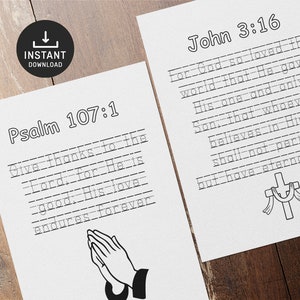 INSTANT
DOWNLOAD
Psalm 107:1
Give thanks to the
Lord, for He is
good; His love
endures forever
John 3:16
for God so loved the
world that He gave
His one and only
Son that whoever
believes in Him
shall not perish
but have eternal